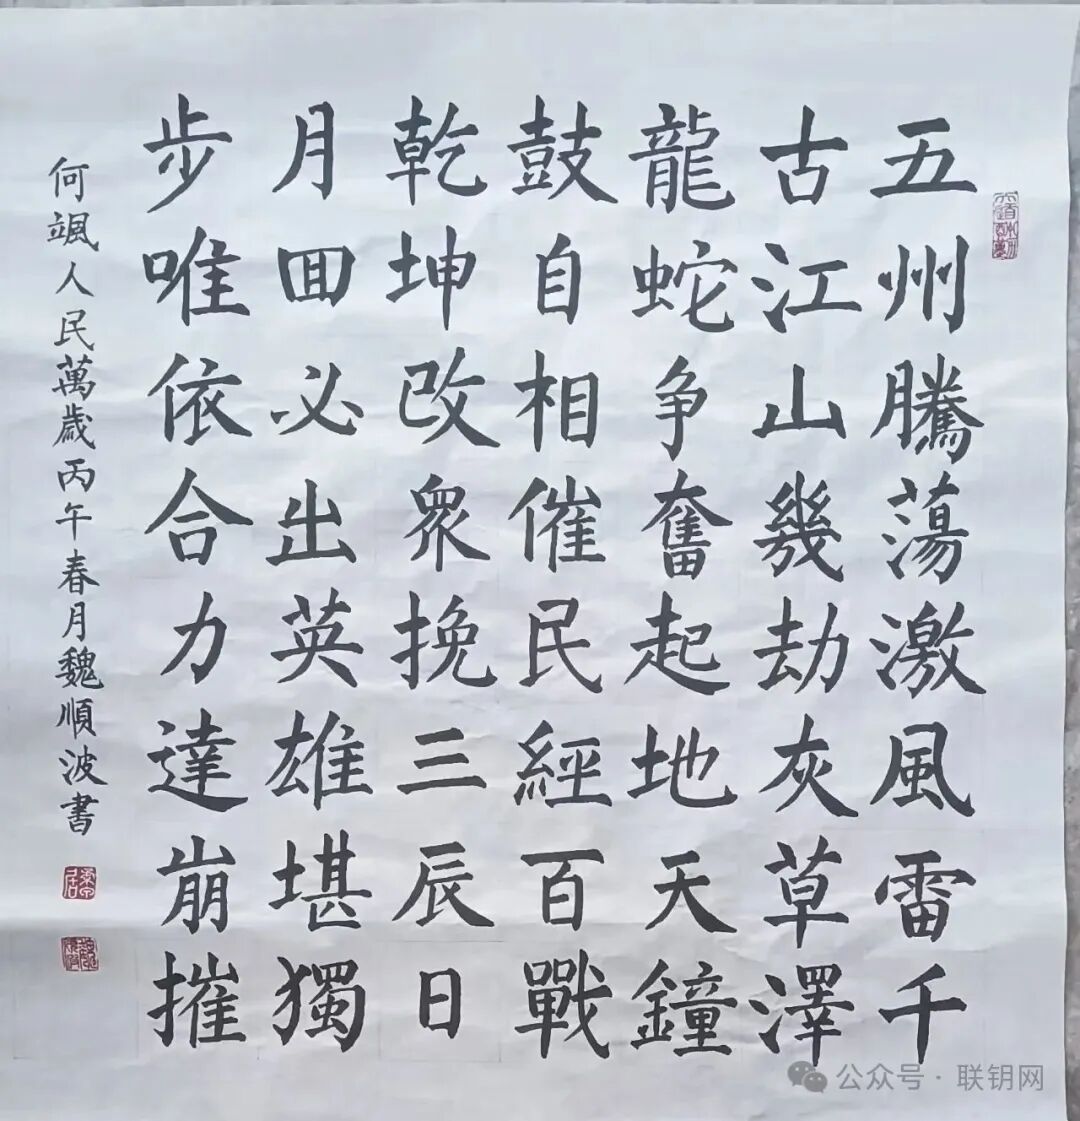 五州騰蕩激風雷千
古江山幾劫灰草澤
龍蛇争奮起地天鐘
鼓自相催民經百戰
乾坤改衆挽三辰日
月回必出英雄堪獨
步唯依合力達崩摧
何颯人民萬歲丙午春月魏順波書
公众号·联钥网